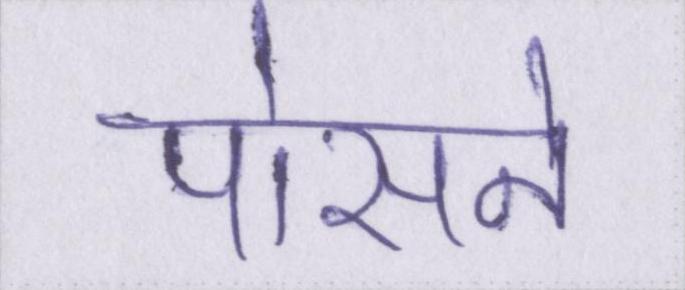 पोसने